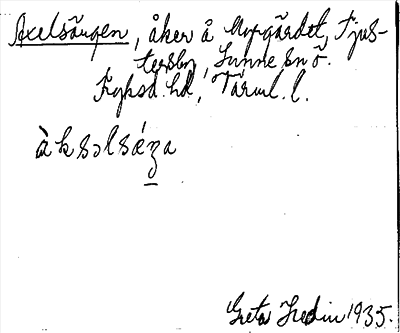 Axelsängen, åker å Uppgärdet, Tjus-
tersby, Sunne sn ö.
Fryksd. hd, Värml. l.
àksəlsǽŋa
Greta Hedin 1935.